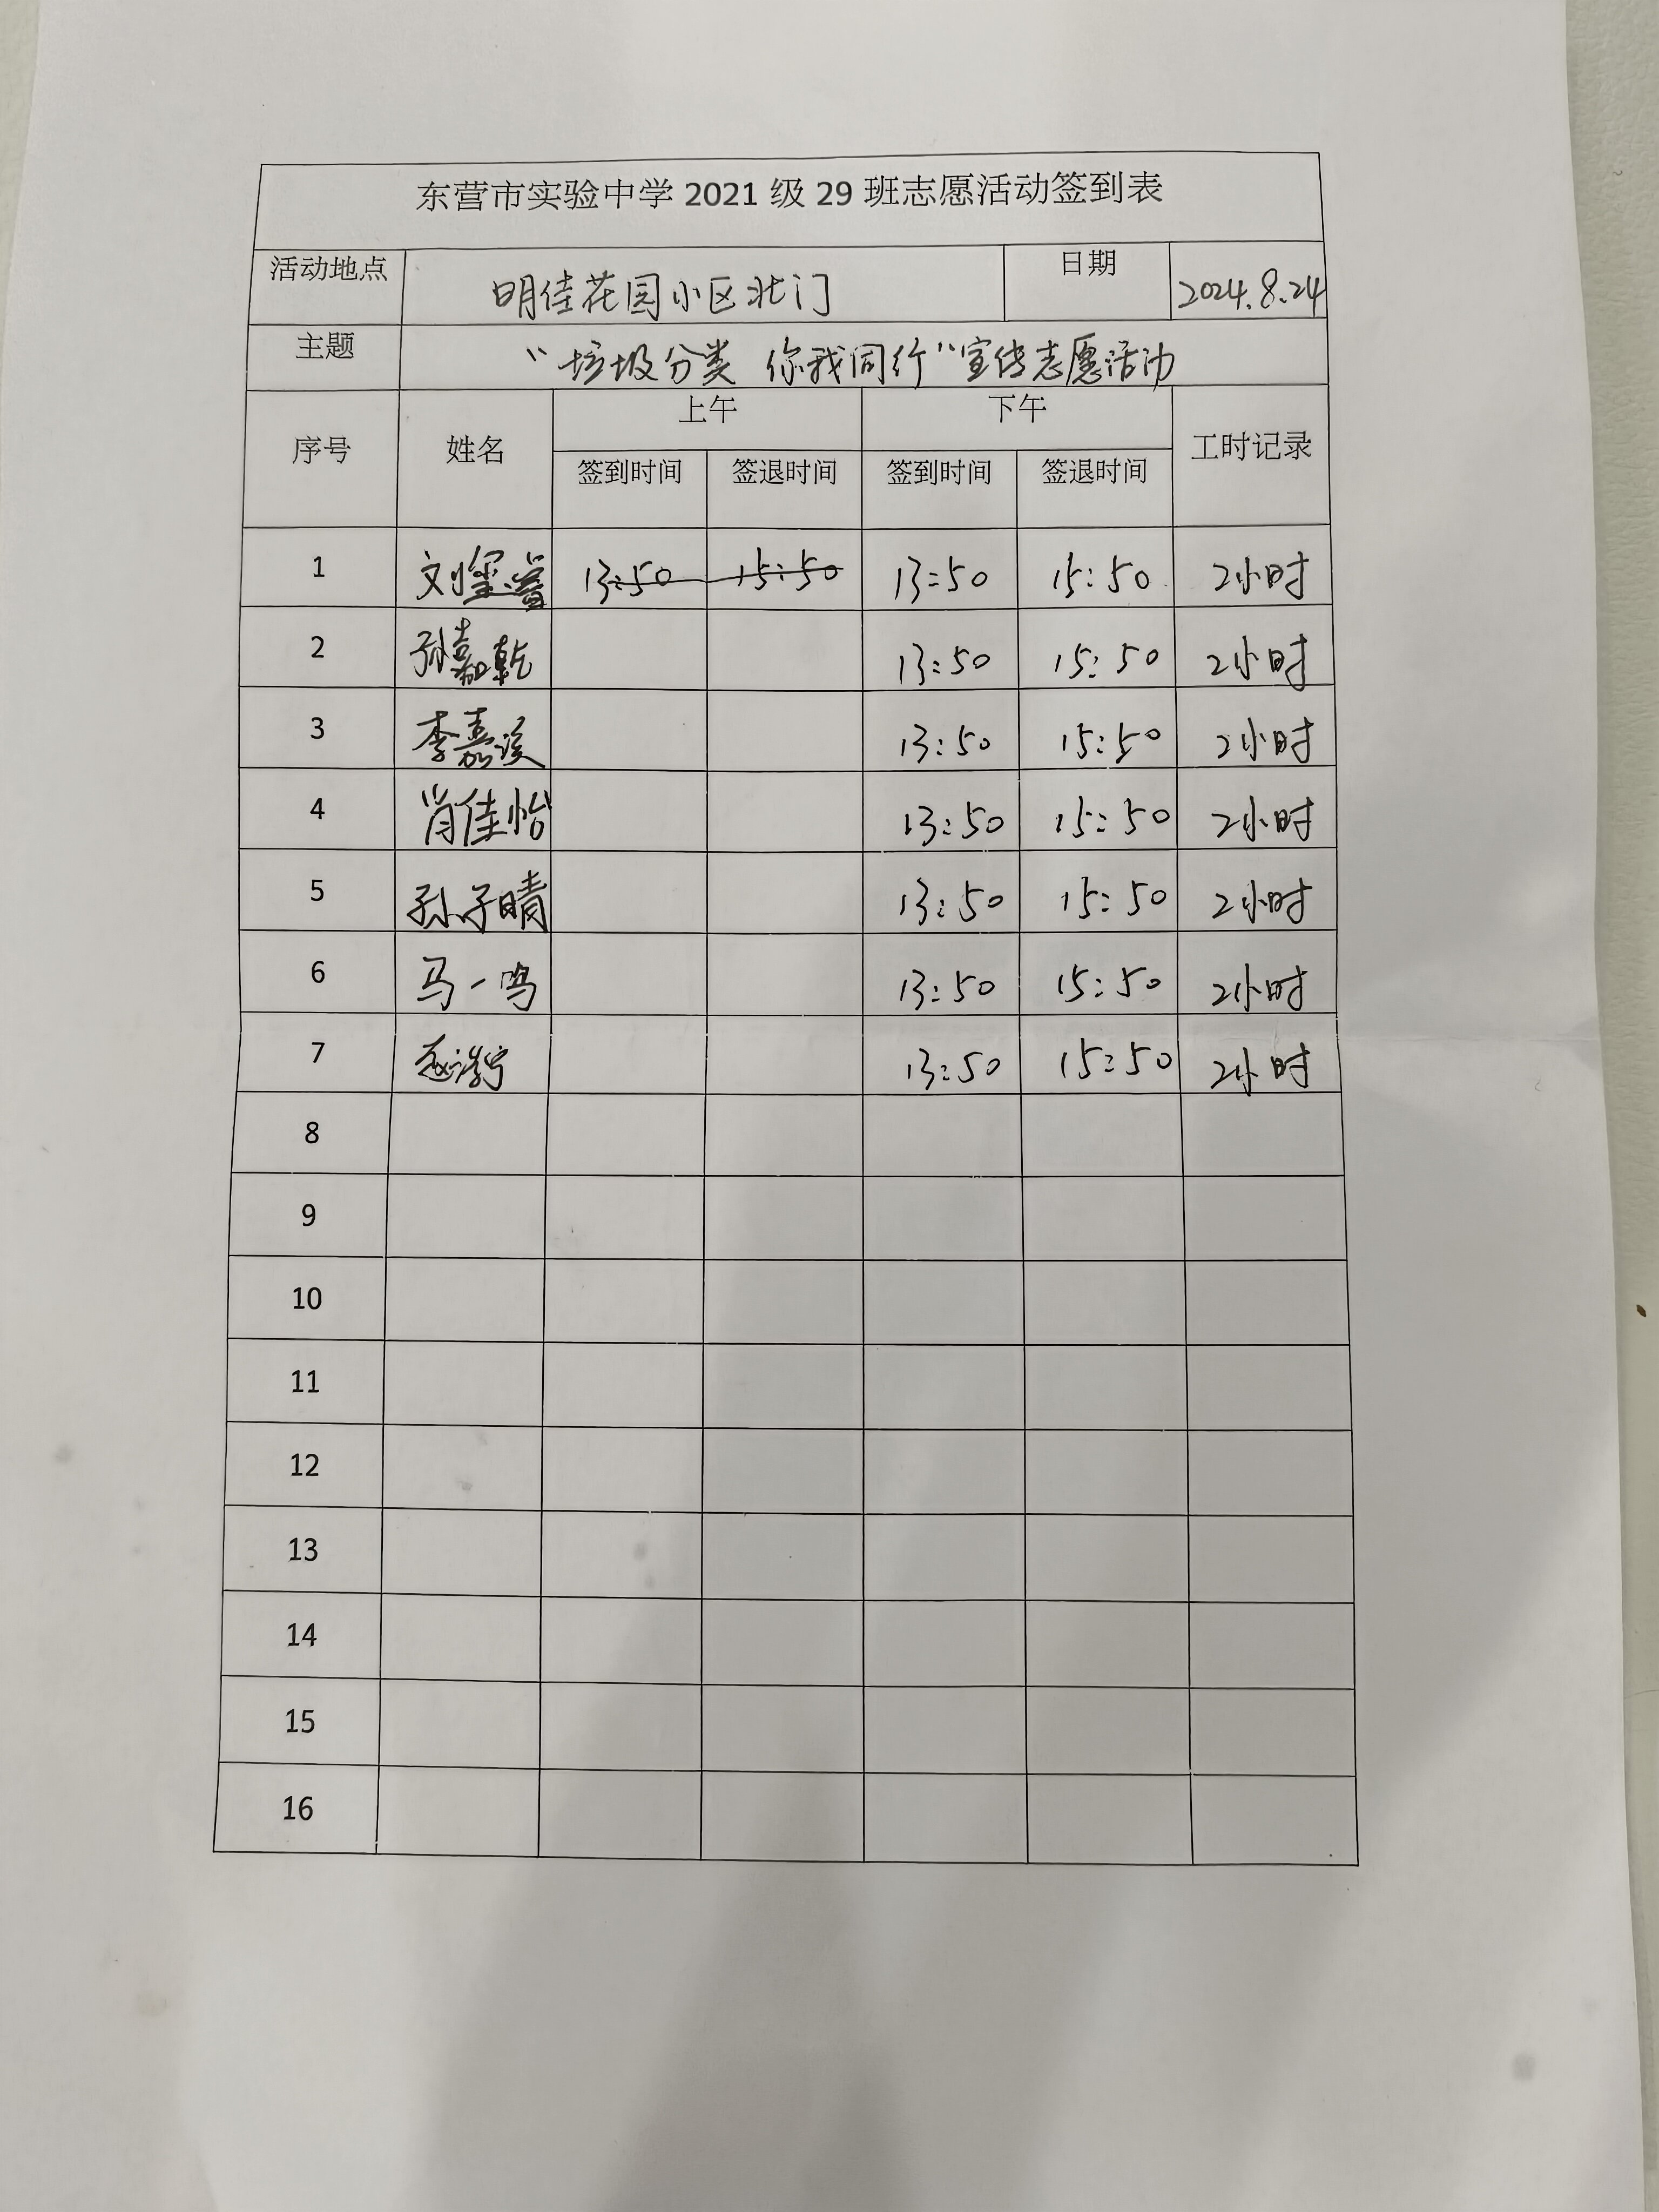 东营市实验中学 2021 级 29 班志愿活动签到表
活动地点 明佳花园小区北门 日期 2024.8.24
主题 “垃圾分类 你我同行”宣传志愿活动
序号 姓名 上午 下午 工时记录
签到时间 签退时间 签到时间 签退时间
1 刘玺萱 13:50 15:50 13:50 15:50 2小时
2 孙嘉乾 13:50 15:50 2小时
3 李嘉溪 13:50 15:50 2小时
4 肖佳怡 13:50 15:50 2小时
5 孙子晴 13:50 15:50 2小时
6 马一鸣 13:50 15:50 2小时
7 13:50 15:50 2小时
8
9
10
11
12
13
14
15
16